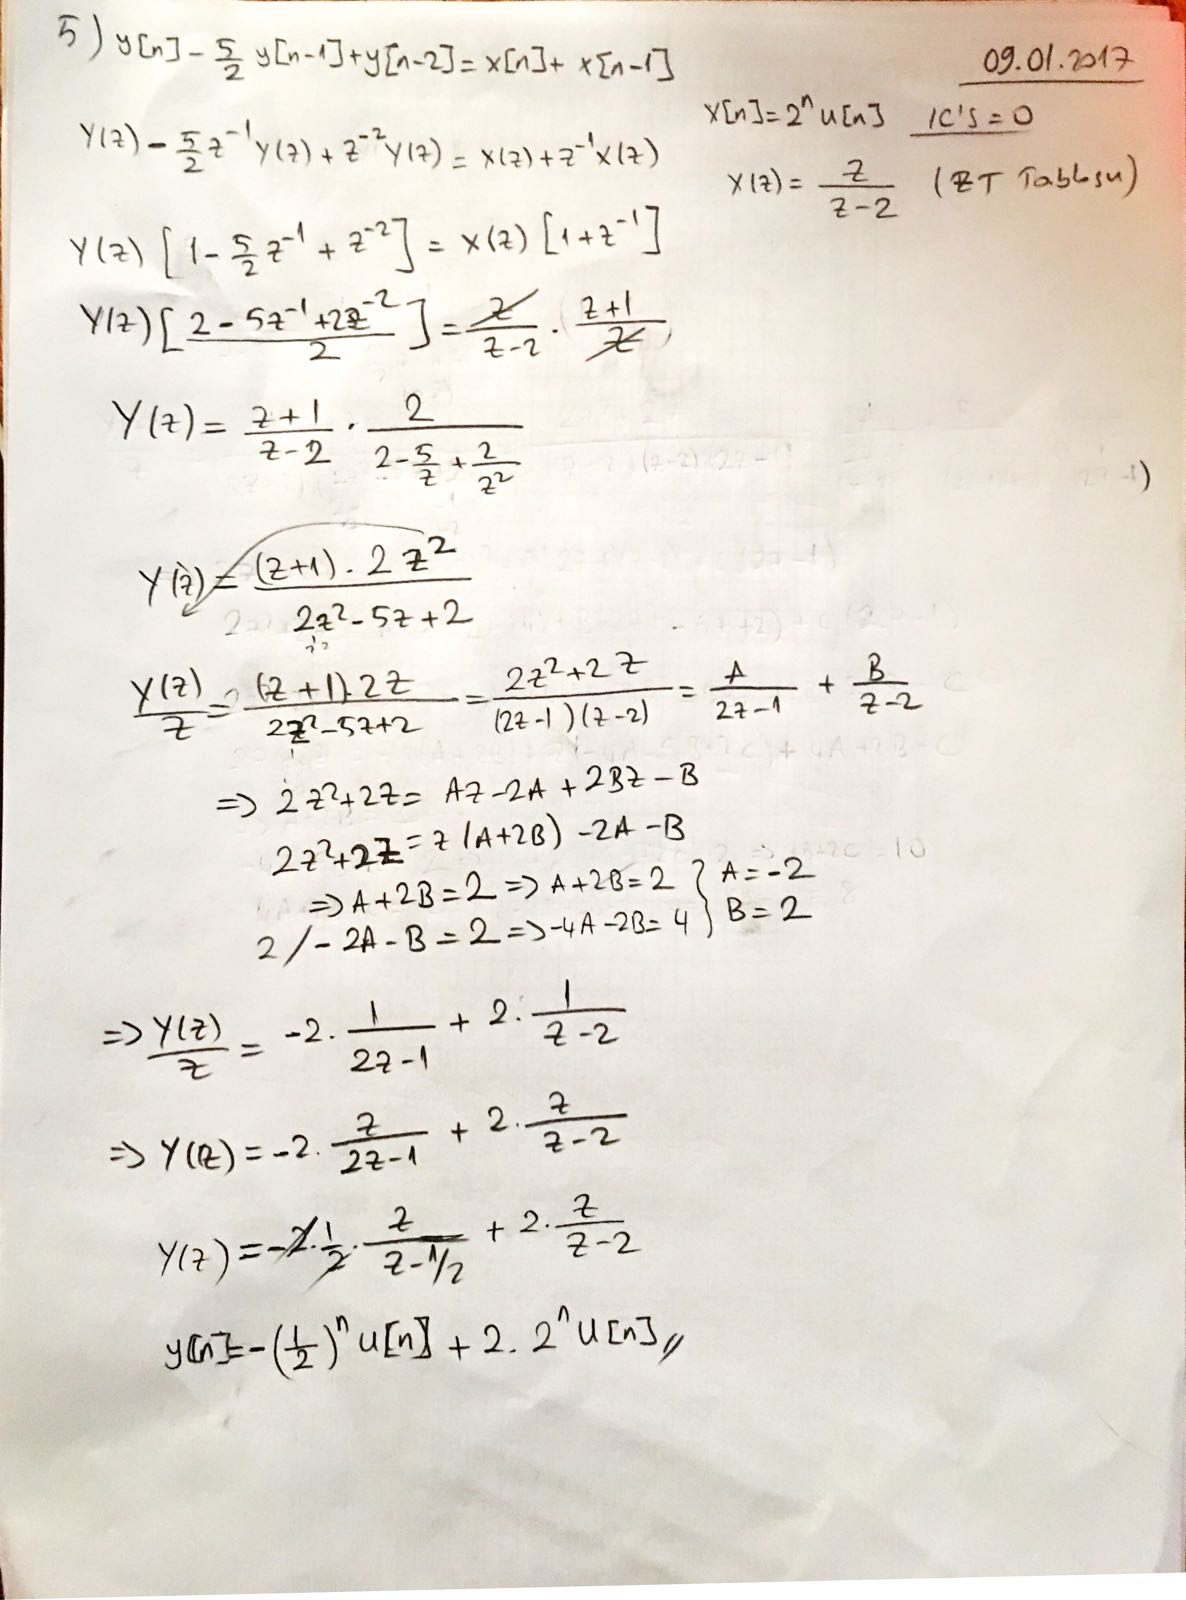 5) y[n] - 5/2 y[n-1] + y[n-2] = x[n] + x[n-1]
09.01.2017
x[n] = 2^n u[n] IC'S = 0
Y(z) - 5/2 z^-1 Y(z) + z^-2 Y(z) = X(z) + z^-1 X(z)
X(z) = z/(z-2) (ZT Tablosu)
Y(z) [1 - 5/2 z^-1 + z^-2] = X(z) [1 + z^-1]
Y(z) [(2 - 5z^-1 + 2z^-2)/2] = z/(z-2) . (z+1)/z
Y(z) = (z+1)/(z-2) . 2/(2 - 5/z + 2/z^2)
Y(z) = (z+1) . 2z^2/(2z^2 - 5z + 2)
Y(z)/z = (z+1).2z/(2z^2 - 5z + 2) = (2z^2 + 2z)/((2z-1)(z-2)) = A/(2z-1) + B/(z-2)
=> 2z^2 + 2z = Az - 2A + 2Bz - B
2z^2 + 2z = z(A+2B) - 2A - B
=> A + 2B = 2 => A + 2B = 2 } A = -2
2 / -2A - B = 2 => -4A - 2B = 4 } B = 2
=> Y(z)/z = -2 . 1/(2z-1) + 2 . 1/(z-2)
=> Y(z) = -2 . z/(2z-1) + 2 . z/(z-2)
Y(z) = -2 . 1/2 . z/(z-1/2) + 2 . z/(z-2)
y[n] = -(1/2)^n u[n] + 2 . 2^n u[n] //